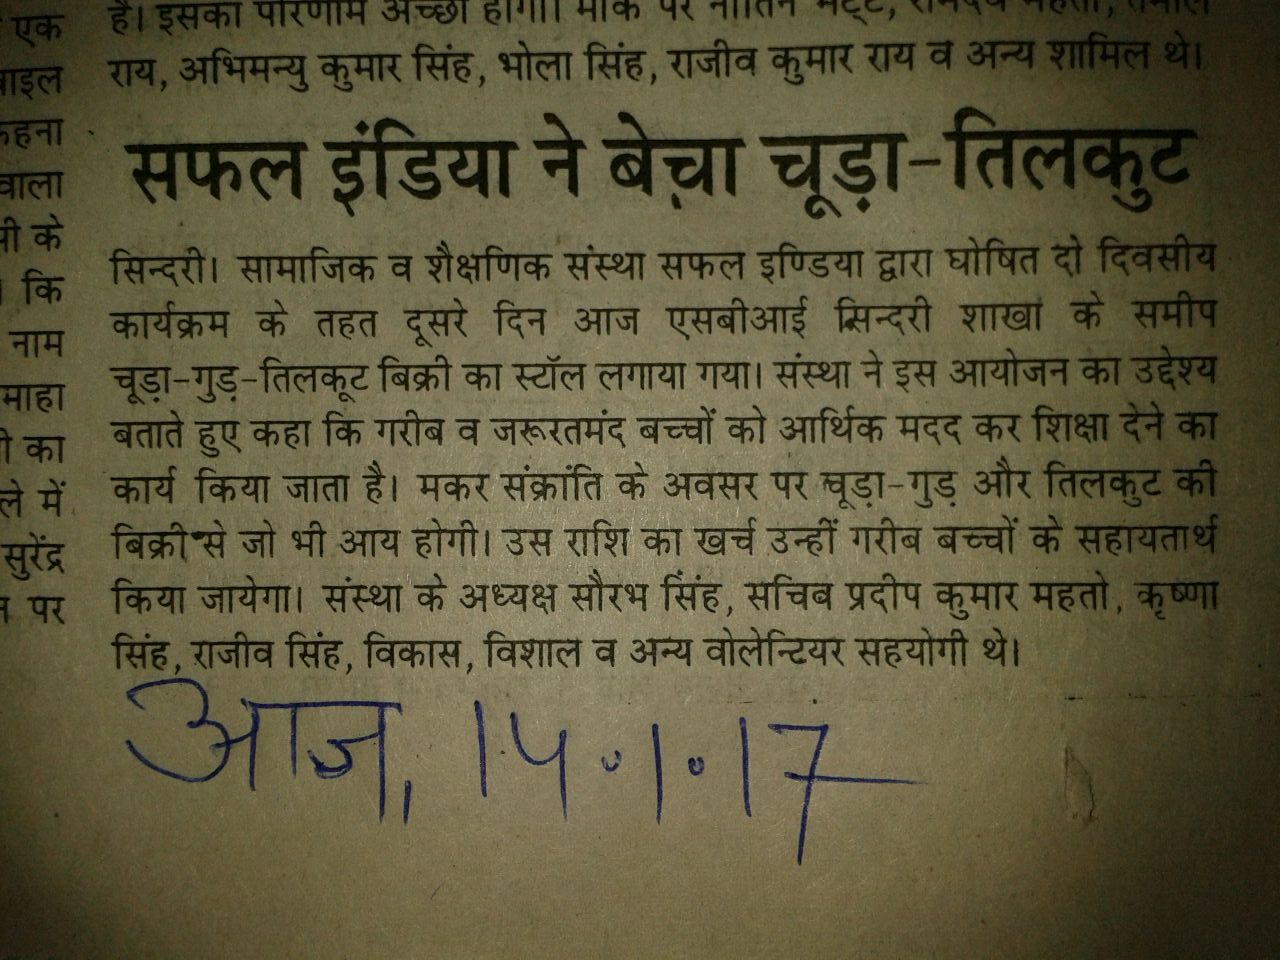 एक
ाइल
कहना
वाला
ी के
कि
नाम
माहा
ी का
ले में
सुरेंद्र
पर
है। इसका परिणाम अच्छा होगा। मौके पर
राय, अभिमन्यु कुमार सिंह, भोला सिंह, राजीव कुमार राय व अन्य शामिल थे।
सफल इंडिया ने बेचा चूड़ा-तिलकुट
सिन्दरी। सामाजिक व शैक्षणिक संस्था सफल इण्डिया द्वारा घोषित दो दिवसीय
कार्यक्रम के तहत दूसरे दिन आज एसबीआई सिन्दरी शाखा के समीप
चूड़ा-गुड़-तिलकूट बिक्री का स्टॉल लगाया गया। संस्था ने इस आयोजन का उद्देश्य
बताते हुए कहा कि गरीब व जरूरतमंद बच्चों को आर्थिक मदद कर शिक्षा देने का
कार्य किया जाता है। मकर संक्रांति के अवसर पर चूड़ा-गुड़ और तिलकुट की
बिक्री से जो भी आय होगी। उस राशि का खर्च उन्हीं गरीब बच्चों के सहायतार्थ
किया जायेगा। संस्था के अध्यक्ष सौरभ सिंह, सचिव प्रदीप कुमार महतो, कृष्णा
सिंह, राजीव सिंह, विकास, विशाल व अन्य वोलेन्टियर सहयोगी थे।
आज, 14.1.17